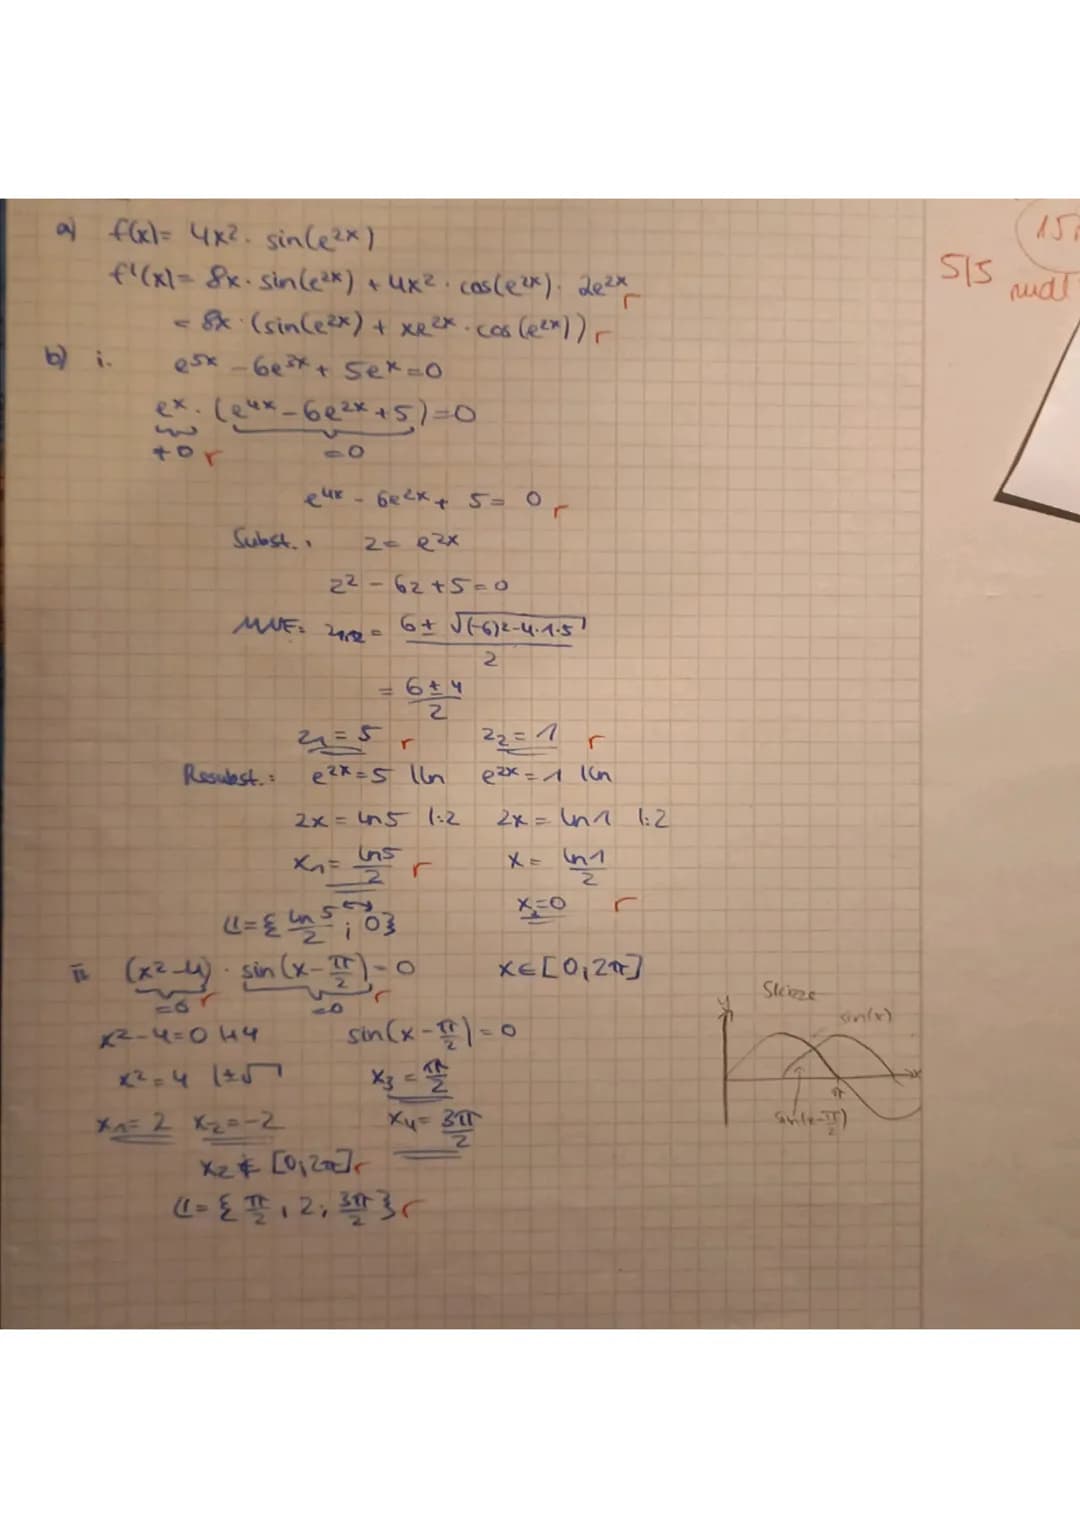 a) f(x)= 4x². sin(e²ˣ)
f'(x)= 8x · sin(e²ˣ) + 4x² · cos(e²ˣ) · 2e²ˣ r
= 8x · (sin(e²ˣ) + xe²ˣ · cos(e²ˣ)) r
5/5
b) i. e⁵ˣ - 6e³ˣ + 5eˣ = 0
eˣ · (e⁴ˣ - 6e²ˣ + 5) = 0
≠0 r =0
e⁴ˣ - 6e²ˣ + 5 = 0 r
Subst.: z = e²ˣ
z² - 6z + 5 = 0
MNF: z₁,₂ = (6 ± √((-6)² - 4·1·5))/2
= (6 ± 4)/2
z₁ = 5 r z₂ = 1 r
Resubst.: e²ˣ = 5 |ln e²ˣ = 1 |ln
2x = ln5 |:2 2x = ln1 |:2
x₁ = ln5/2 r x = ln1/2
x₂=0 r
L = { ln5/2 ; 0}
ii (x²-4) · sin(x - π/2) = 0 x∈[0,2π]
=0 r =0 r
x²-4=0 |+4 sin(x - π/2) = 0
x² = 4 |±√ x₃ = π/2
x₁ = 2 x₂ = -2 x₄ = 3π/2
x₂ ∉ [0,2π] r
L = { π/2 , 2 ; 3π/2 } r
Skizze
y
sin(x)
x
π
sin(x-π/2)